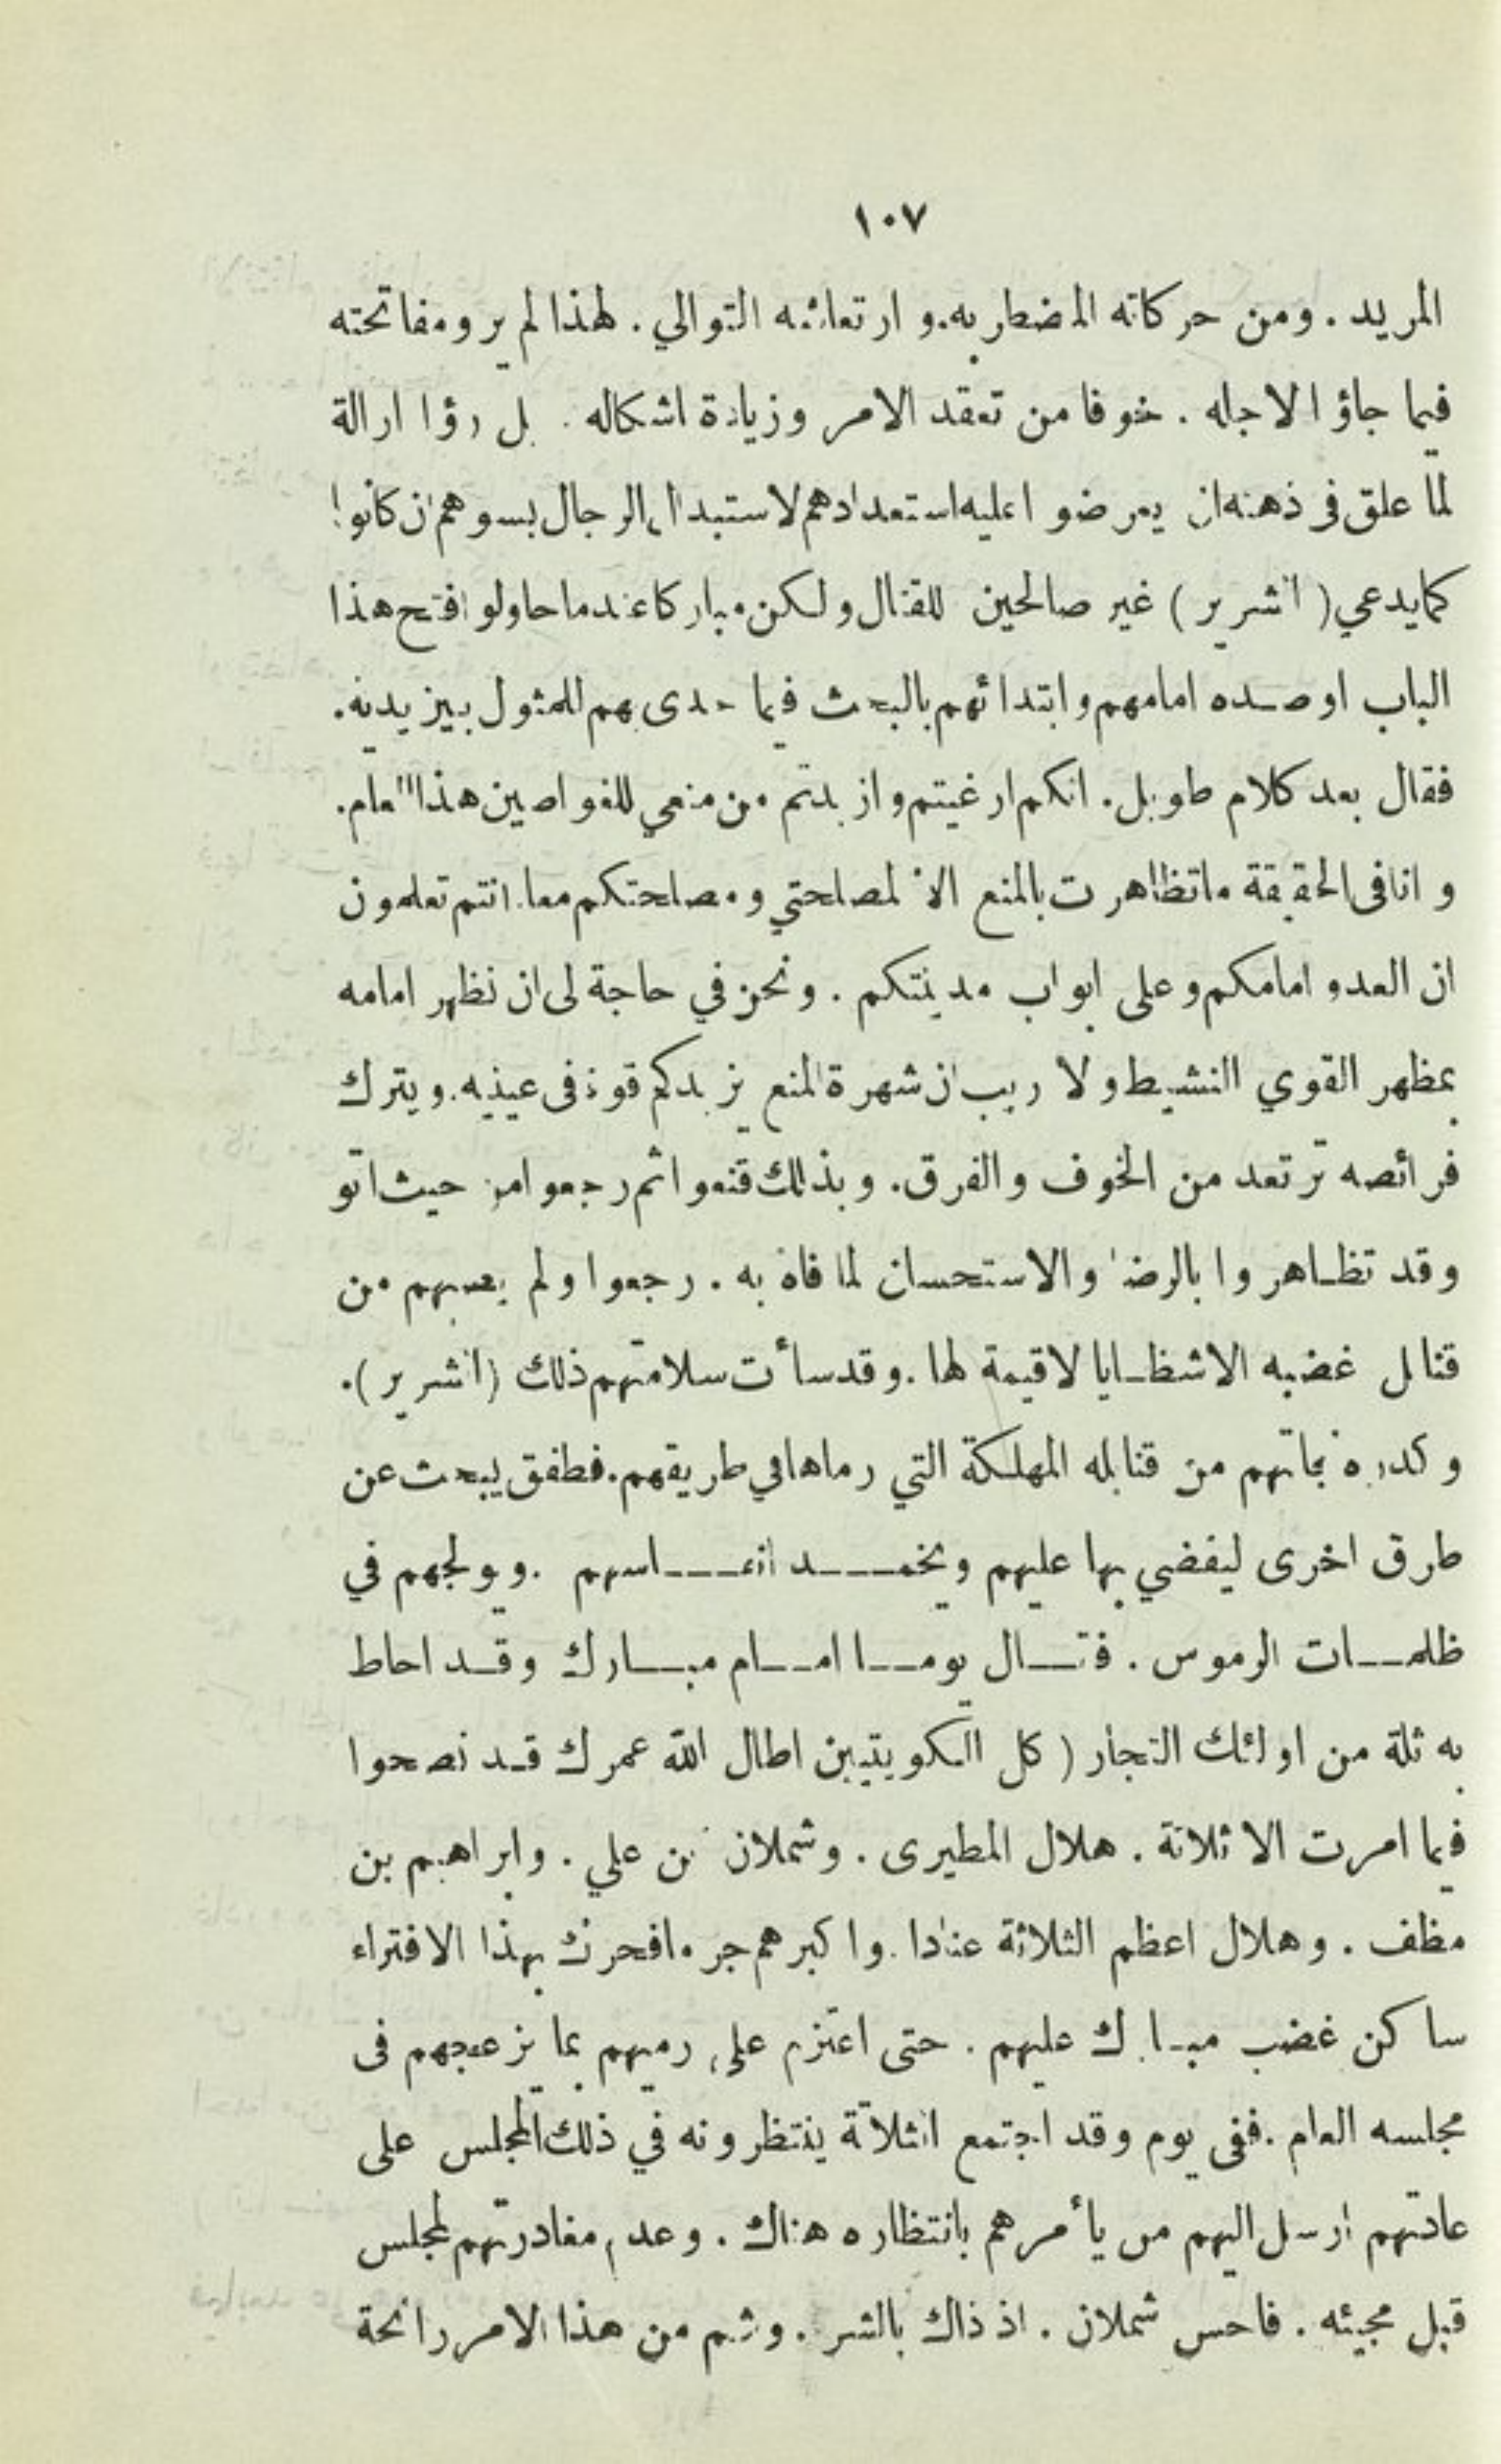 ١٠٧
المريد . ومن حركاته المضطربه. و ارتعاشه التوالي . لهذا لم يرو مفاتحته
فيما جاؤا لاجله . خوفا من تعقد الامر وزيادة اشكاله . بل رؤا ارالة
لما علق فى ذهنه ان يعرضوا عليه استعدادهم لاستبدال الرجال بسوهم ان كانوا
كما يدعي ( الشرير ) غير صالحين للقتال ولكن مباركا عندما حاولو افتح هذا
الباب اوصده امامهم وابتدائهم بالبحث فيما حدى بهم للمثول بين يديه.
فقال بعد كلام طويل . انكم ارغيتم وازبدتم من منعي للغواصين هذا العام.
و انا فى الحقيقة ما تظاهرت بالمنع الا لمصلحتي ومصلحتكم معا. انتم تعلمون
ان العدو امامكم وعلى ابواب مدينتكم . ونحن في حاجة لى ان نظهر امامه
بمظهر القوي النشيط ولا ريب ان شهرة المنع يزيدكم قوة فى عينيه. ويترك
فرائصه ترتعد من الخوف والفرق. وبذلك قنعوا ثم رجعوا من حيث اتو
وقد تظاهروا بالرضا والاستحسان لما فاه به . رجعوا ولم يصبهم من
قنابل غضبه الا شظايا لا قيمة لها .وقد سأت سلامتهم ذلك (الشرير).
وكدره نجاتهم من قنابله المهلكة التي رماها في طريقهم. فطفق يبحث عن
طرق اخرى ليقضي بها عليهم ويخمد انفاسهم .ويولجهم في
ظلمات الرموس . فقال يوما امام مبارك وقد احاط
به ثلة من اولئك التجار ( كل الكويتيين اطال الله عمرك قد نصحوا
فيما امرت الا ثلاثة . هلال المطيرى . وشملان بن علي . وابراهيم بن
مظف . وهلال اعظم الثلاثة عنادا .واكبرهم جرما فحرك بهذا الافتراء
ساكن غضب مبارك عليهم . حتى اعتزم على رميهم بما يزعجهم فى
مجلسه العام .ففى يوم وقد اجتمع الثلاثة ينتظرونه في ذلك المجلس على
عادتهم ارسل اليهم من يأمرهم بانتظاره هناك . وعدم مغادرتهم لمجلس
قبل مجيئه . فاحس شملان . اذ ذاك بالشر . وشم من هذا الامر رائحة